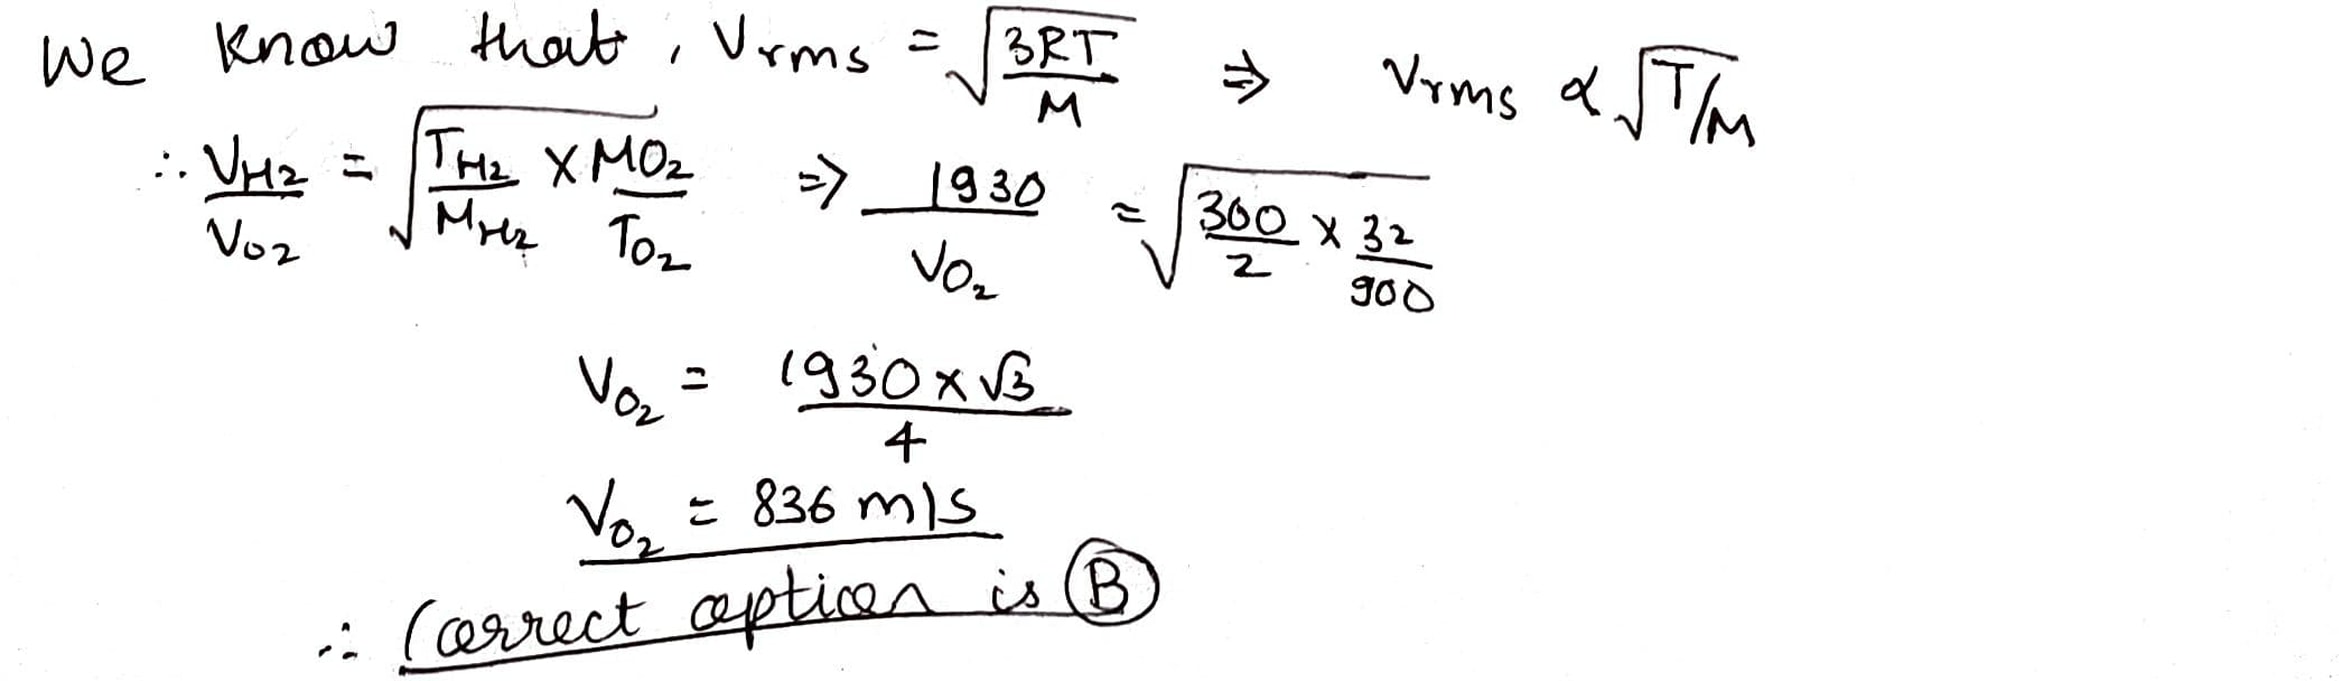 We know that, Vrms = √(3RT/M) ⇒ Vrms ∝ √T/M
∴ VH2/VO2 = √(TH2/MH2 × MO2/TO2) ⇒ 1930/VO2 = √(300/2 × 32/900)
VO2 = 1930×√3/4
VO2 = 836 m/s
∴ Correct option is B